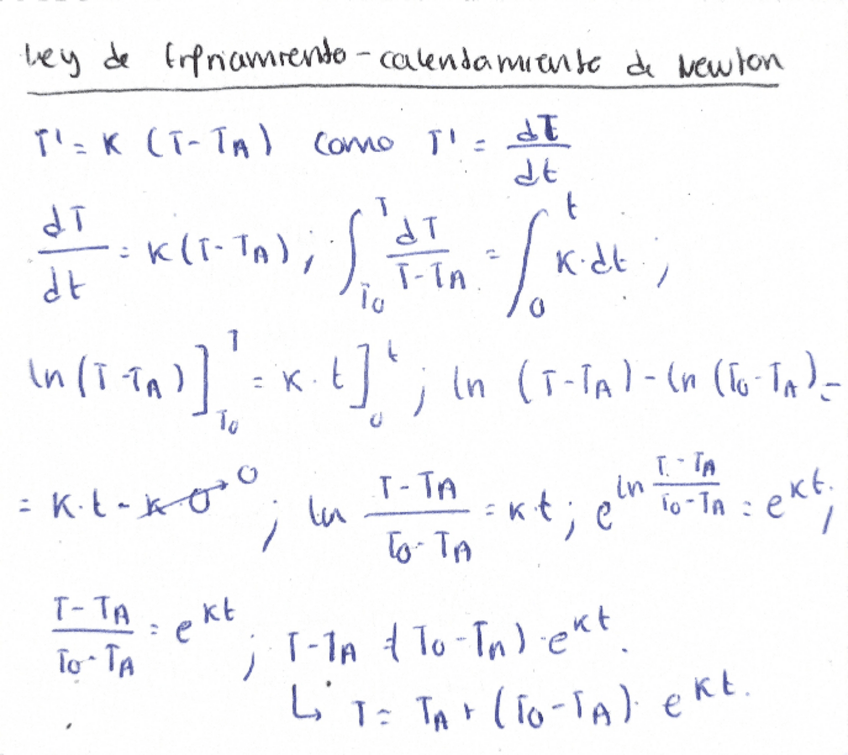 Ley de Enfriamiento-calentamiento de Newton
T' = K (T-TA) como T' = dT/dt
dT/dt = K(T-TA); ∫_{T0}^{T} dT/(T-TA) = ∫_{0}^{t} K·dt;
ln(T-TA)]_{T0}^{T} = K·t]_{0}^{t}; ln (T-TA) - ln (T0-TA) =
= K·t - K·0→0; ln (T-TA)/(T0-TA) = Kt; e^{ln (T-TA)/(T0-TA)} = e^{Kt};
(T-TA)/(T0-TA) = e^{Kt}; T-TA = (T0-TA)·e^{Kt}.
↳ T = TA + (T0-TA)·e^{Kt}.